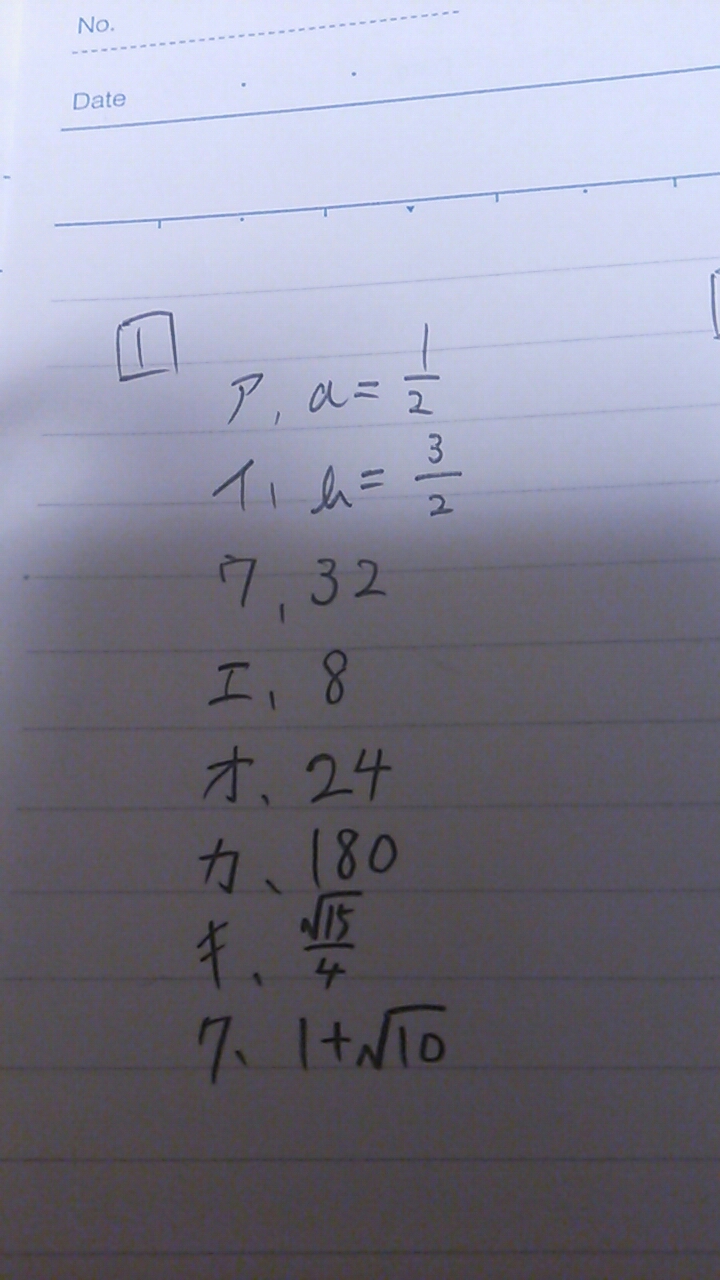 No.
Date
1
ア、a = 1/2
イ、b = 3/2
ウ、32
エ、8
オ、24
カ、180
キ、√15/4
ク、1+√10